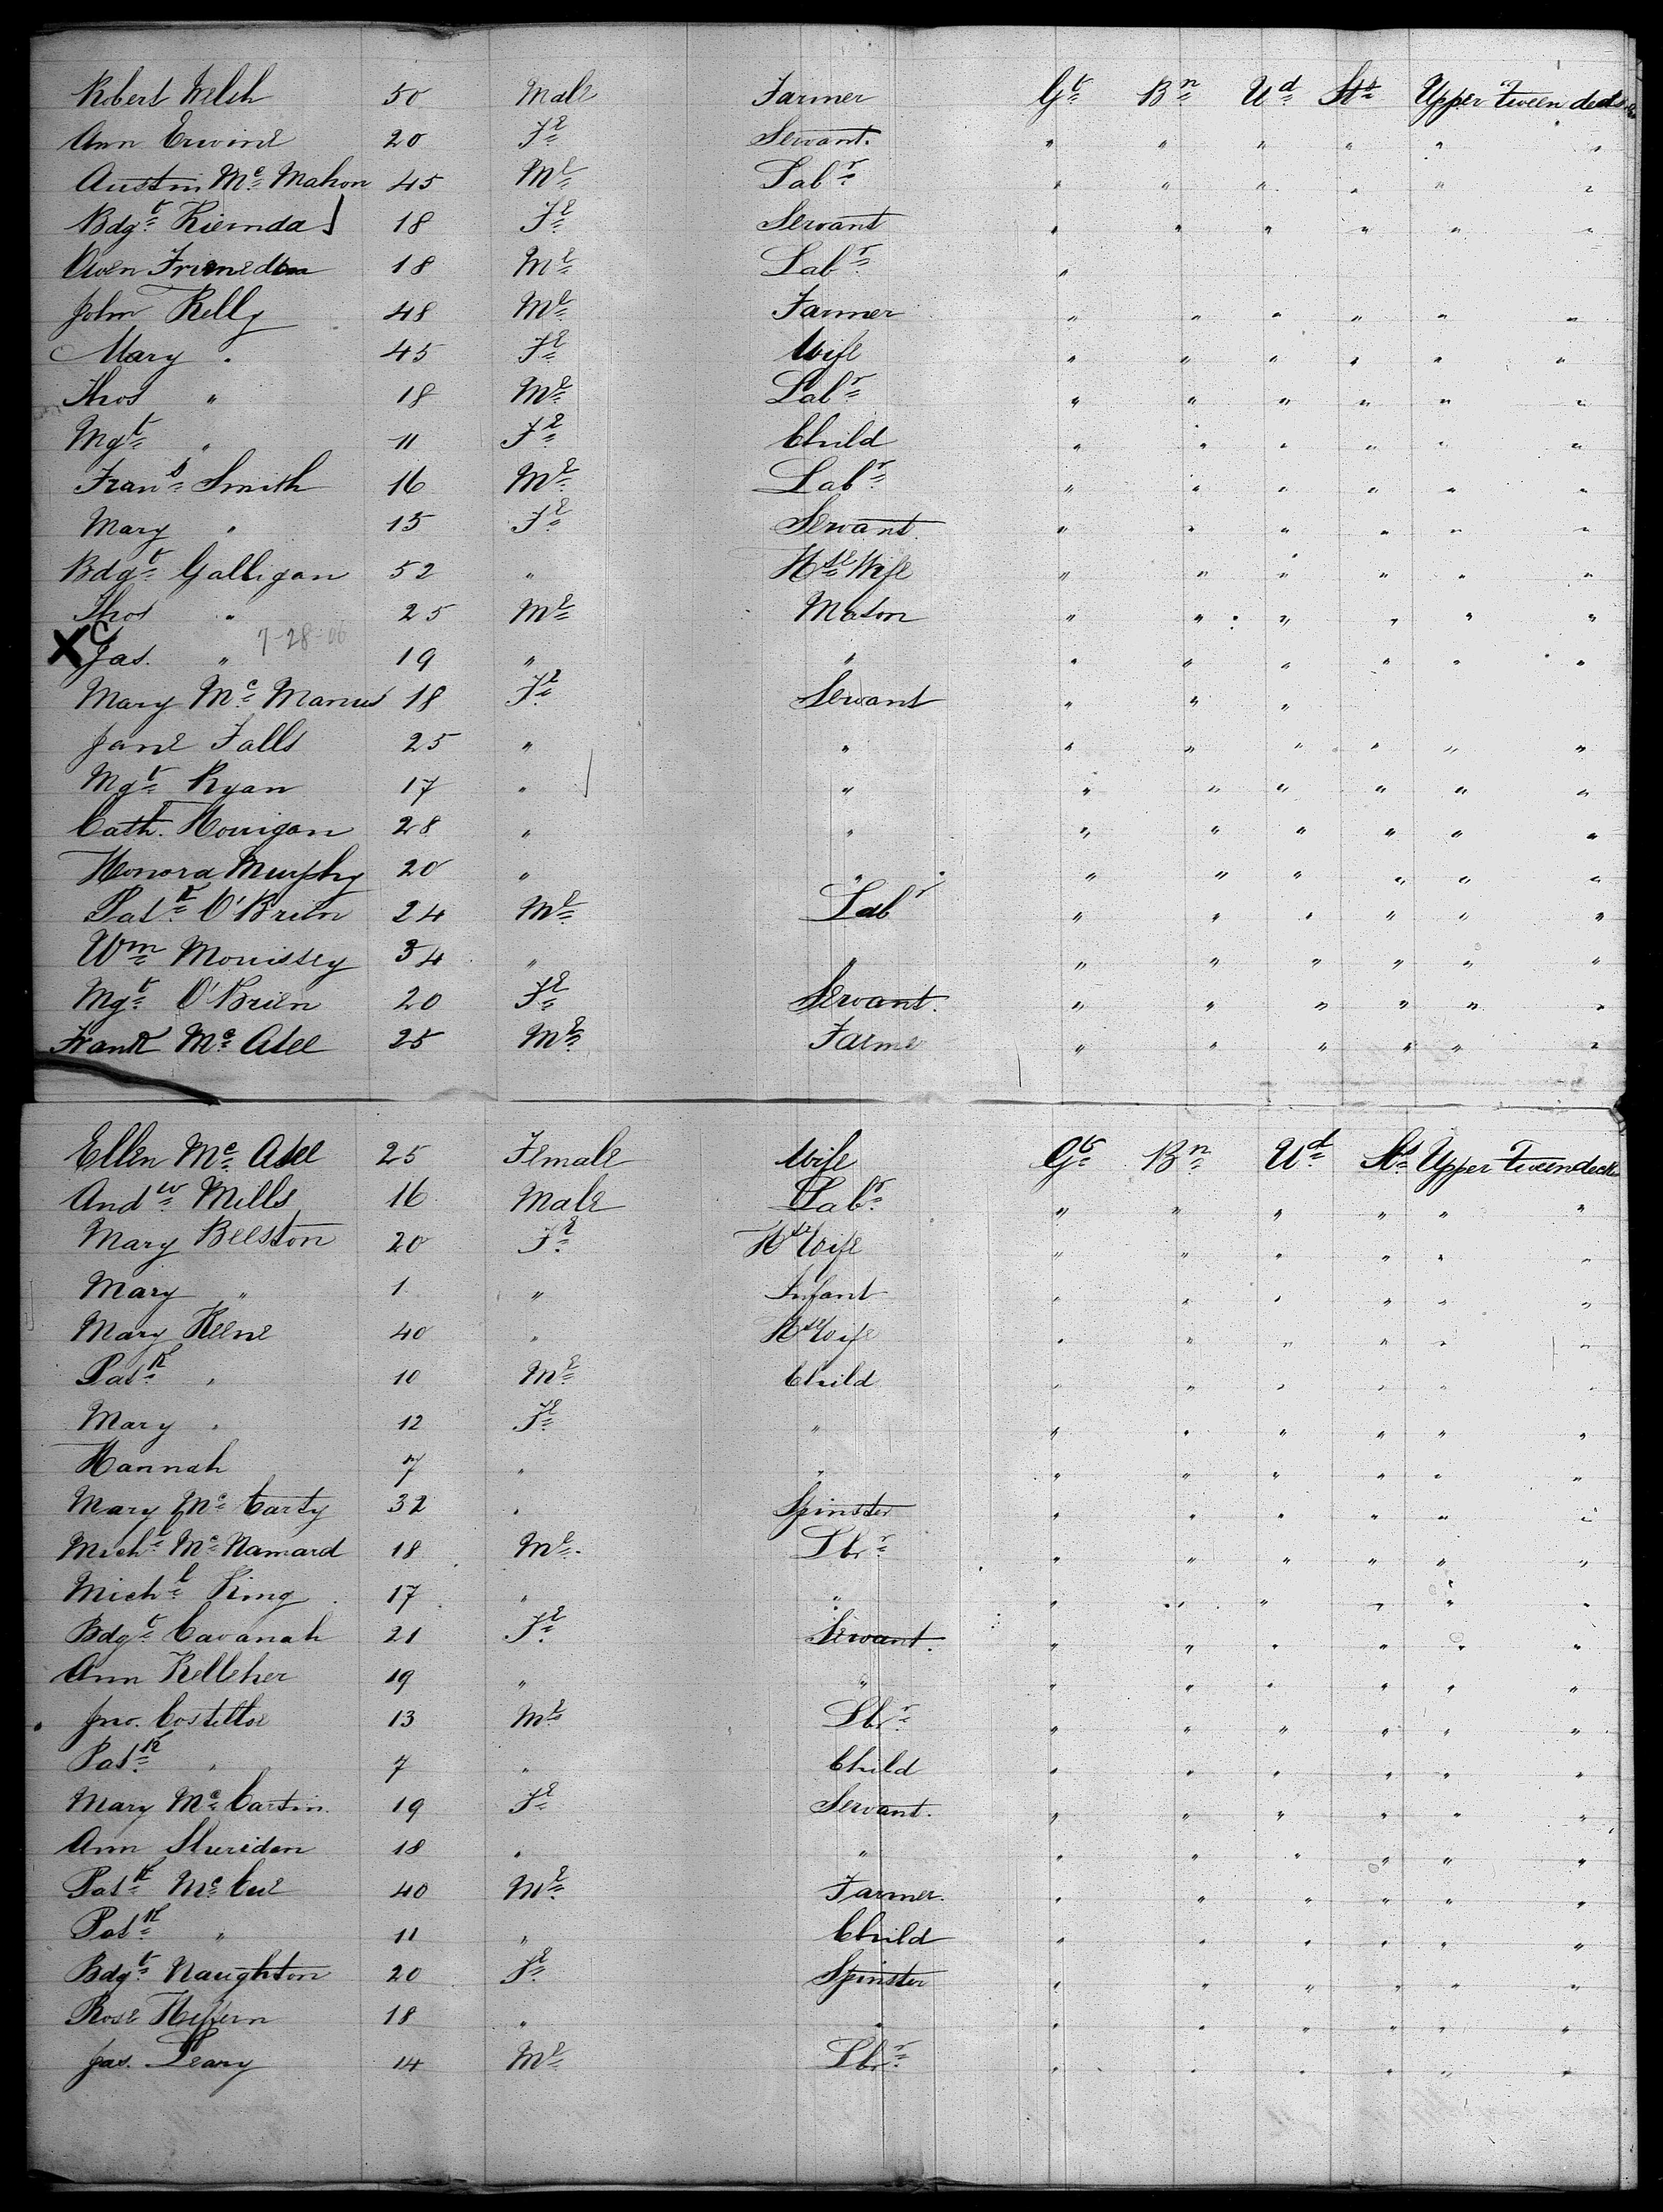 Robert Welsh 50 Male Farmer Gt Bn Ud Sts Upper Tween decks
Ann Erwine 20 Fe Servant. " " " " " "
Austin Mc Mahon 45 Ml Labr " " " " " "
Bdgt 18 Fe Servant " " " " " "
Owen 18 Ml Labr "
John Kelly 48 Ml Farmer " " " " " "
Mary " 45 Fe Wife " " " " " "
Thos " 18 Ml Labr " " " " " "
Mgt " 11 Fe Child " " " " " "
Frans Smith 16 Ml Labr " " " " " "
Mary " 15 Fe Servant. " " " " " "
Bdgt Galligan 52 " Hse Wife " " " " " "
Thos " 25 Ml Mason " " " " " "
X C Jas. " 7-28-06 19 " " " " " " " "
Mary Mc Manus 18 Fe Servant " " "
Jane Falls 25 " " " " " " " "
Mgt Ryan 17 " " " " " " " "
Cath. Horrigan 28 " " " " " " " "
Honora Murphy 20 " " " " " " " "
Patk O'Brien 24 Ml Labr " " " " " "
Wm Morrissey 34 " " " " " " " "
Mgt O'Brien 20 Fe Servant. " " " " " "
Frank Mc Atee 25 Ml Farmer " " " " " "
Ellen Mc Atee 25 Female Wife Gt Bn Ud Sts Upper Tween decks
Andw Mills 16 Male Labr " " " " " "
Mary Beeston 20 Fe Hse Wife " " " " " "
Mary " 1 " Infant " " " " " "
Mary Keene 40 " Hse Wife " " " " " "
Patk " 10 Ml Child " " " " " "
Mary " 12 Fe " " " " " " "
Hannah 7 " " " " " " " "
Mary Mc Carty 32 " Spinster " " " " " "
Michl Mc Namard 18 Ml Lbr " " " " " "
Michl King 17 " " " " " " " "
Bdgt Cavanah 21 Fe Servant. " " " " " "
Ann Kelleher 19 " " " " " " " "
Jno. Costelloe 13 Ml Lbr " " " " " "
Patk " 7 " Child " " " " " "
Mary Mc Cartin. 19 Fe Servant. " " " " " "
Ann Sheridan 18 " " " " " " " "
Patk Mc Cue 40 Ml Farmer. " " " " " "
Patk " 11 " Child " " " " " "
Bdgt Naughton 20 Fe Spinster " " " " " "
Rose Heffern 18 " " " " " " " "
Jas. Leary 14 Ml Lbr " " " " " "